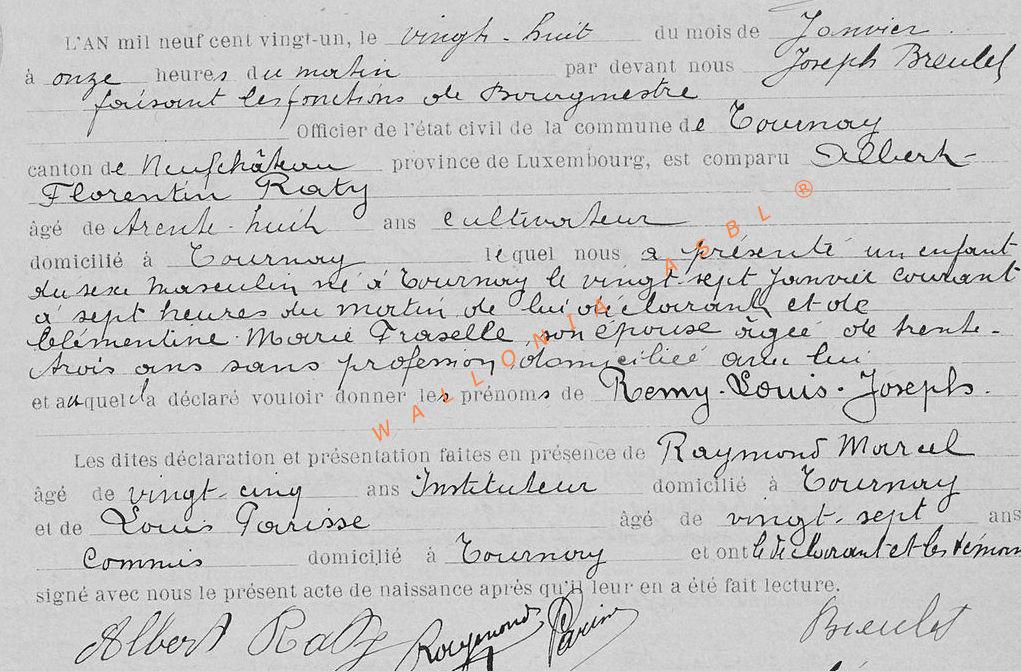 L'AN mil neuf cent vingt-un, le vingt-huit du mois de Janvier.
à onze heures du matin par devant nous Joseph Breulet
faisant les fonctions de Bourgmestre
Officier de l'état civil de la commune de Tournay
canton de Neufchâteau province de Luxembourg, est comparu Albert-
Florentin Raty
âgé de trente-huit ans cultivateur
domicilié à Tournay lequel nous a présenté un enfant
du sexe masculin né à Tournay le vingt-sept Janvier courant
à sept heures du matin de lui déclarant et de
Clémentine Marie Fraselle, son épouse âgée de trente-
trois ans sans profession, domiciliée avec lui
et auquel il a déclaré vouloir donner les prénoms de Remy-Louis-Joseph.
Les dites déclaration et présentation faites en présence de Raymond Marcel
âgé de vingt-cinq ans Instituteur domicilié à Tournay
et de Louis Parisse âgé de vingt-sept ans
Commis domicilié à Tournay et ont le déclarant et les témoin
signé avec nous le présent acte de naissance après qu'il leur en a été fait lecture.
Albert Raty Raymond Breulet
WALLONIA ASBL ®